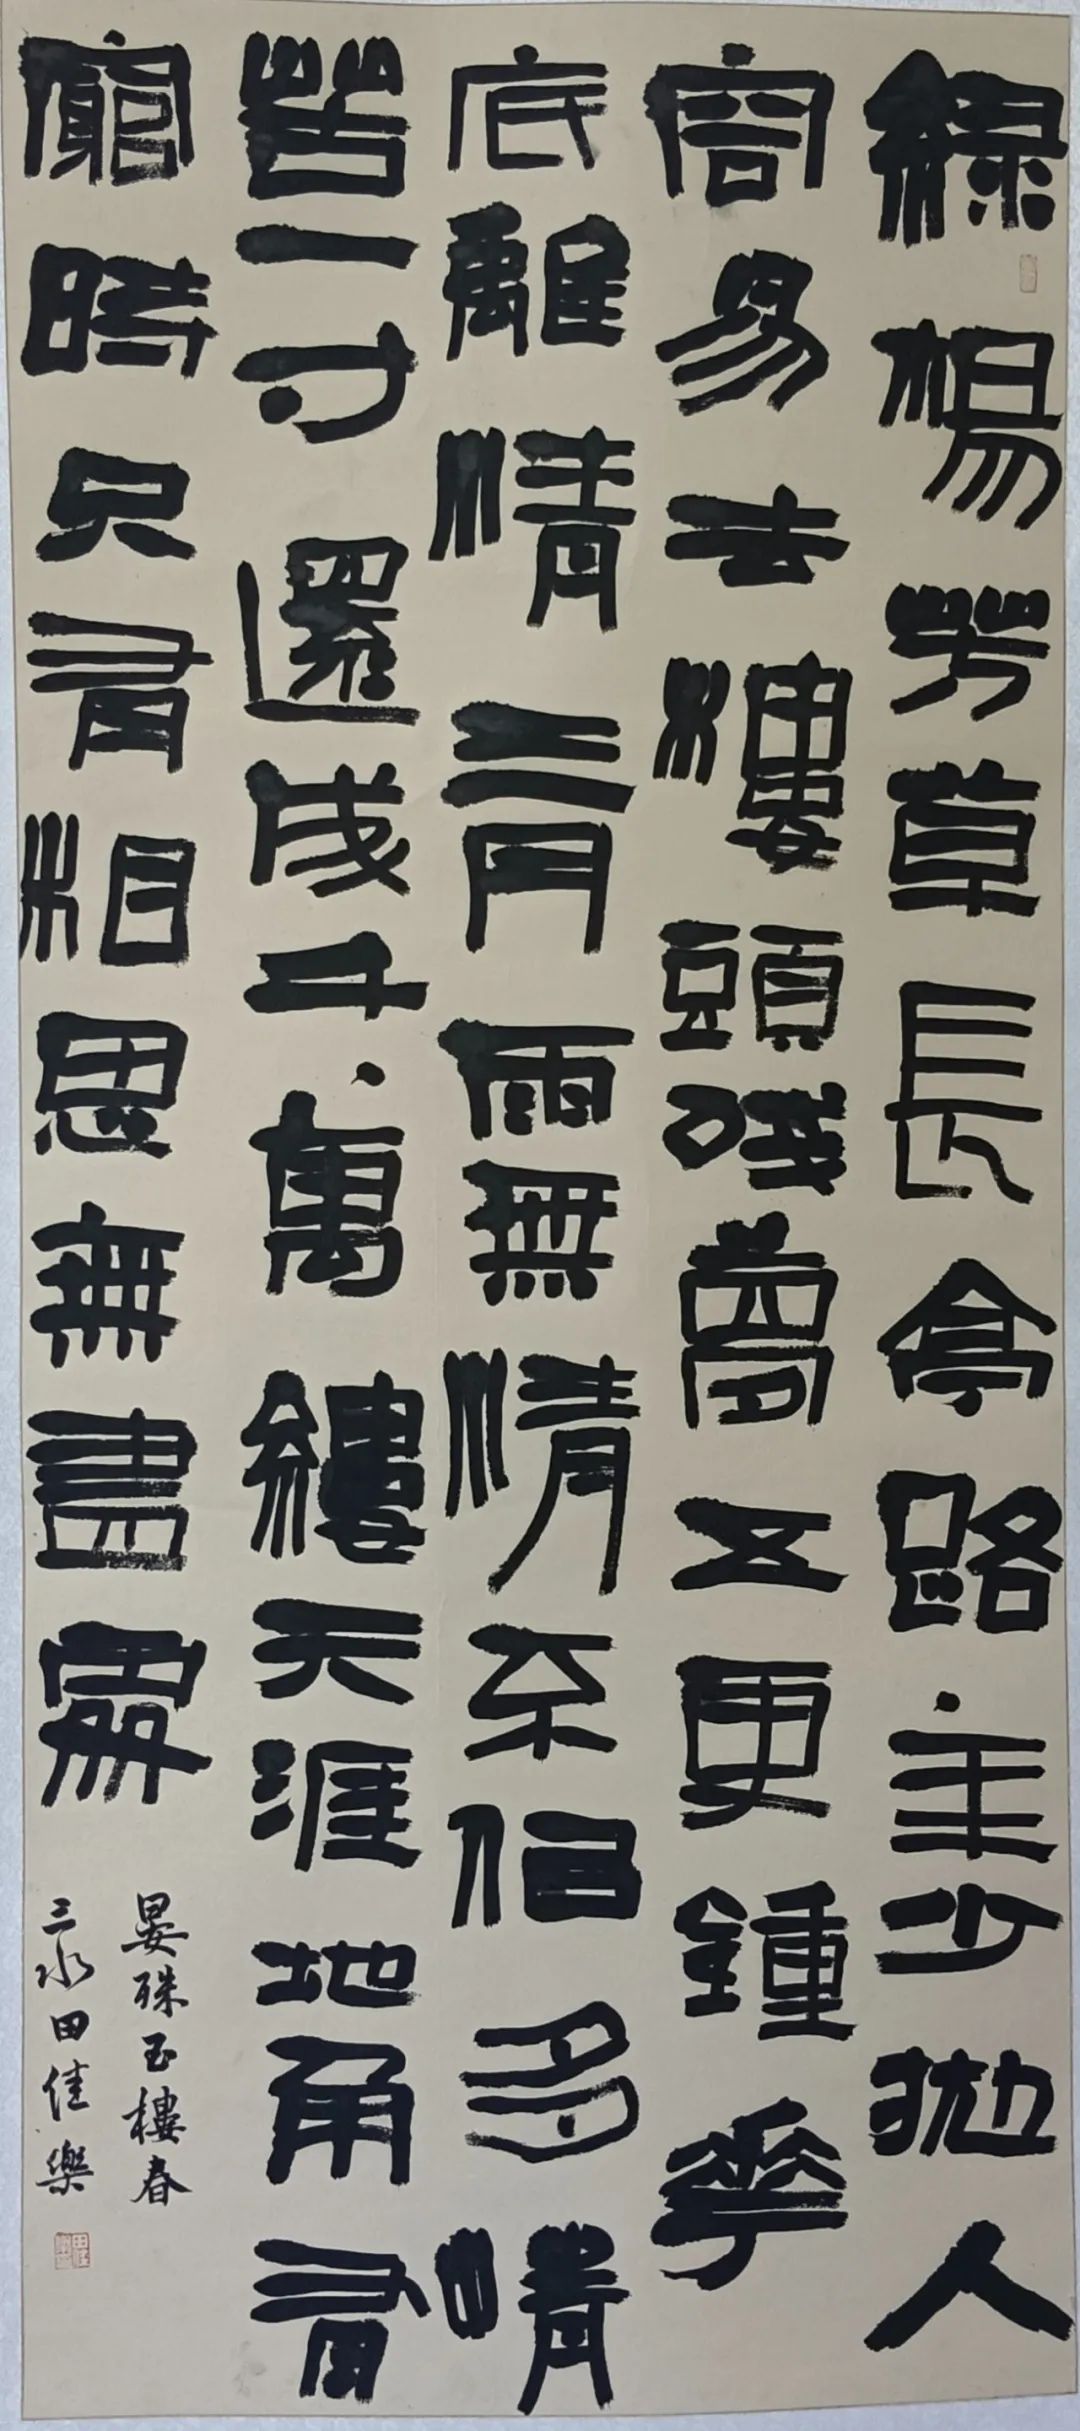 綠楊芳草長亭路年少抛人
容易去樓頭殘夢五更鍾花
底離情三月雨無情不似多情
苦一寸還成千萬縷天涯地角有
窮時只有相思無盡處
晏殊玉樓春
三水田佳樂